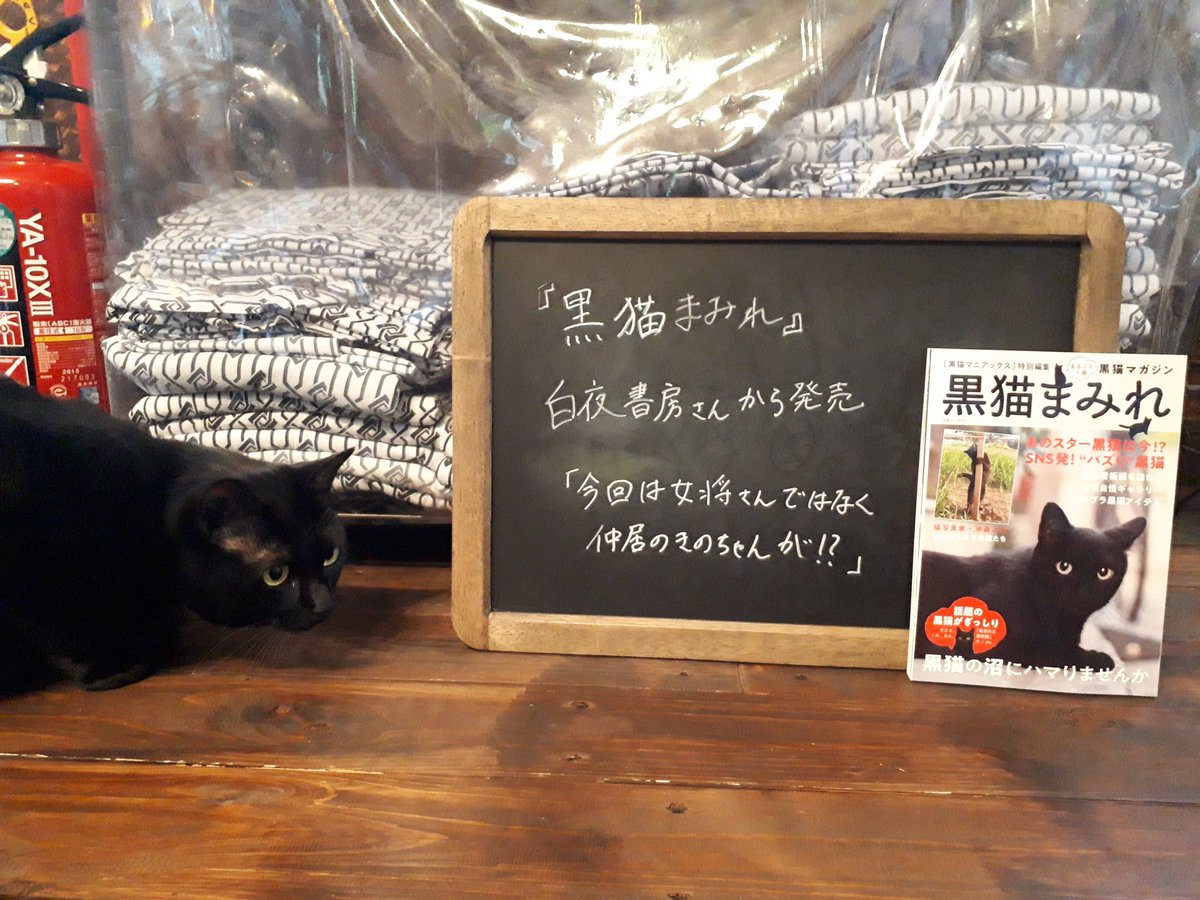 『黒猫まみれ』
白夜書房さんから発売
「今回は女将さんではなく
仲居のきのちゃんが!?」
[黒猫マニアックス]特別編集
黒猫マガジン
黒猫まみれ
あのスター黒猫は今!?
SNS発!"バズり"黒猫
話題の
黒猫がぎっしり
黒猫の沼にハマりませんか
YA-10XⅢ
粉末(ABC)消火器
2016
217093